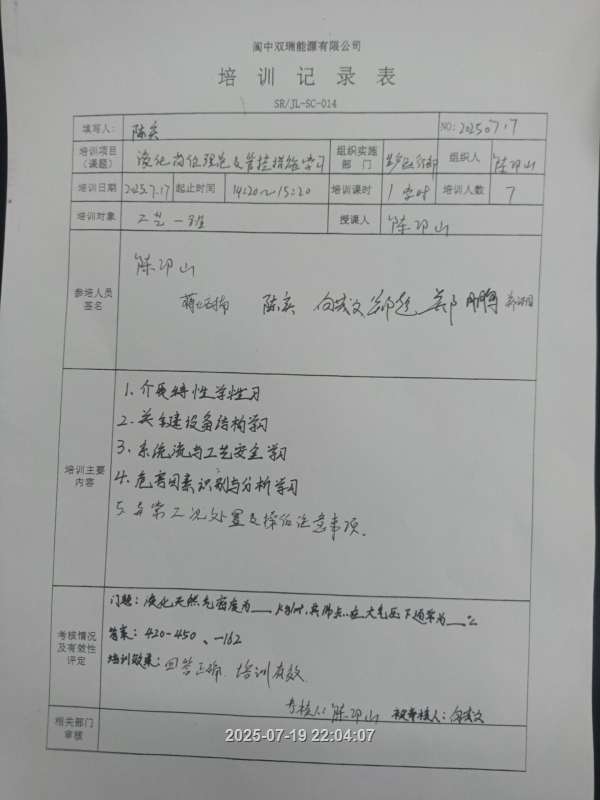 阆中双瑞能源有限公司
培训记录表
SR/JL-SC-014
填写人： 陈奕 NO: 2025.07.17
培训项目（课题） 液化岗位理论及管控措施学习 组织实施部门 生产运行部 组织人 陈邛山
培训日期 2025.7.17 起止时间 14:20~15:20 培训课时 1学时 培训人数 7
培训对象 工艺一班 授课人 陈邛山
参培人员签名
陈邛山
陈奕 向武文 郑 鹏
培训主要内容
1. 介质特性学性习
2. 关键建设备结构学习
3. 系统流与工艺安全学习
4. 危害因素识别与分析学习
5. 异常工况处置及操作注意事项.
考核情况及有效性评定
问题：液化天然气密度为___kg/m³，其沸点.在大气压下通常为___℃
答案：420-450、-162
培训效果：回答正确，培训有效.
考核人：陈邛山 被考核人：向武文
相关部门审核
2025-07-19 22:04:07